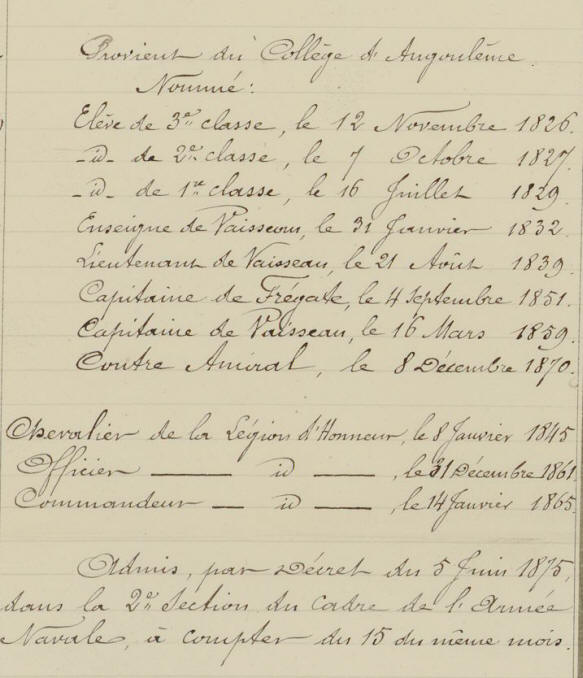 Provient du Collège d'Angoulême.
Nommé :
Elève de 3e classe, le 12 Novembre 1826.
-id- de 2e classe, le 7 Octobre 1827.
-id- de 1re classe, le 16 Juillet 1829.
Enseigne de Vaisseau, le 31 Janvier 1832.
Lieutenant de Vaisseau, le 21 Août 1839.
Capitaine de Frégate, le 4 Septembre 1851.
Capitaine de Vaisseau, le 16 Mars 1859.
Contre Amiral, le 8 Décembre 1870.
Chevalier de la Légion d'Honneur, le 8 Janvier 1845
Officier — id — , le 31 Décembre 1861.
Commandeur — id — , le 14 Janvier 1865.
Admis, par Décret du 5 Juin 1875,
dans la 2e Section du Cadre de l'Armée
Navale, à compter du 15 du même mois.